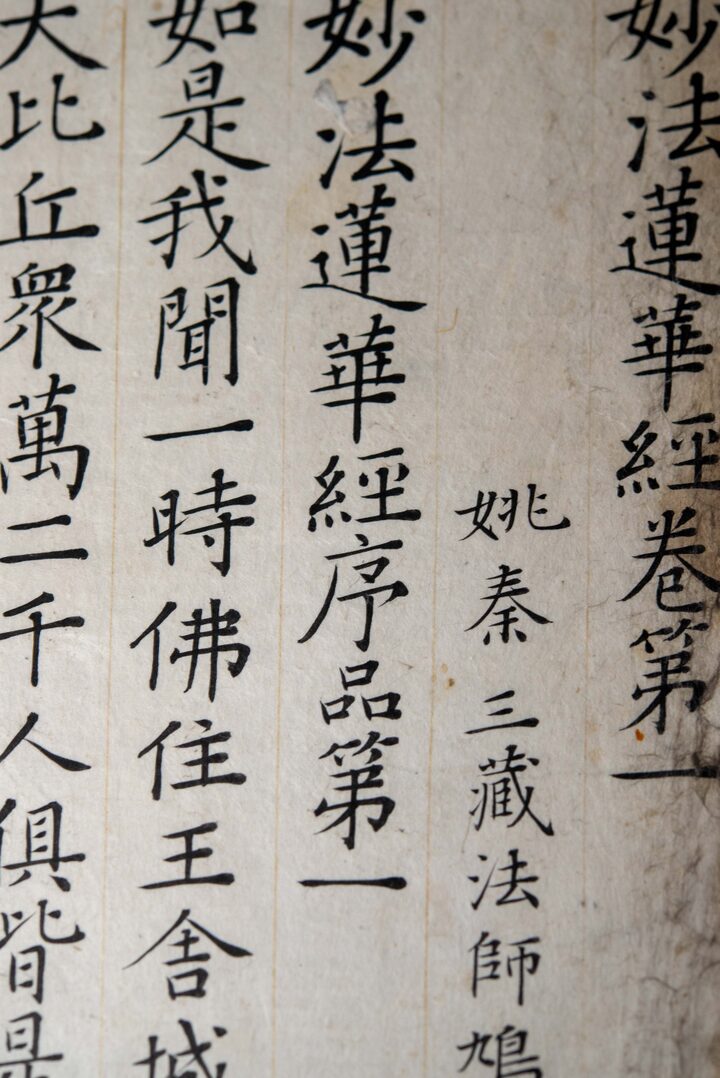 妙法蓮華經卷第一
姚秦三藏法師鳩
妙法蓮華經序品第一
如是我聞一時佛住王舍城
大比丘衆萬二千人俱皆是